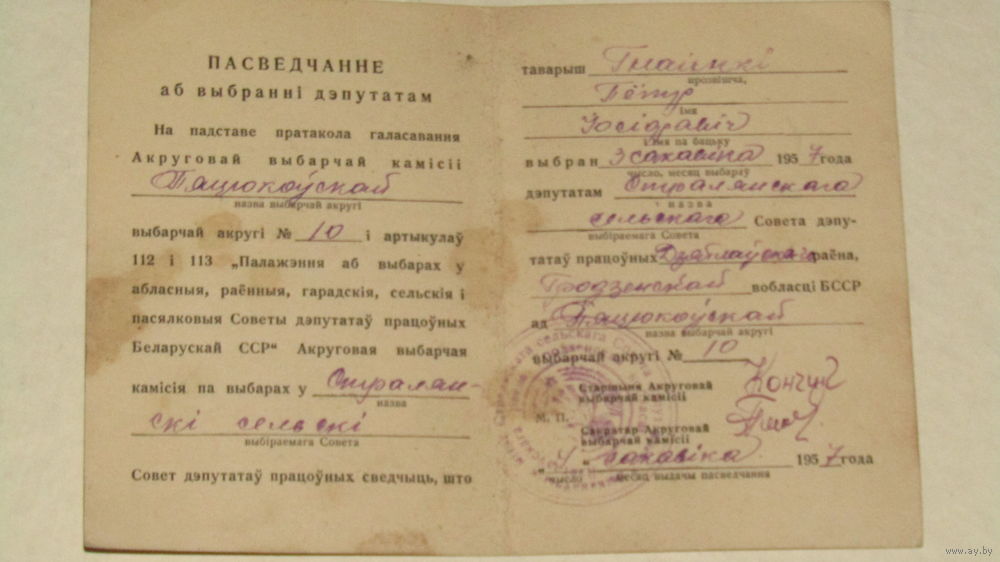 ПАСВЕДЧАННЕ
аб выбранні дэпутатам
На падставе пратакола галасавання
Акруговай выбарчай камісіі
Пацюкоўскай
назва выбарчай акругі
выбарчай акругі № 10 і артыкулаў
112 і 113 „Палажэння аб выбарах у
абласныя, раённыя, гарадскія, сельскія і
пасялковыя Советы дэпутатаў працоўных
Беларускай ССР“ Акруговая выбарчая
камісія па выбарах у
назва
скі сельскі
выбіраемага Совета
Совет дэпутатаў працоўных сведчыць, што
таварыш
прозвішча,
Пётр
імя
Іосіфавіч
і імя па бацьку
выбран 3 сакавіка 1957 года
число, месяц выбараў
дэпутатам
назва
сельскага Совета дэпу-
выбіраемага Совета
татаў працоўных Дзятлаўскага раёна,
Гродзенскай вобласці БССР
ад Пацюкоўскай
назва выбарчай акругі
выбарчай акругі № 10
Старшыня Акруговай
выбарчай камісіі
М. П.
Сакратар Акруговай
выбарчай камісіі
„4“ сакавіка 1957 года
число месяц выдачы пасведчання
www.ay.by